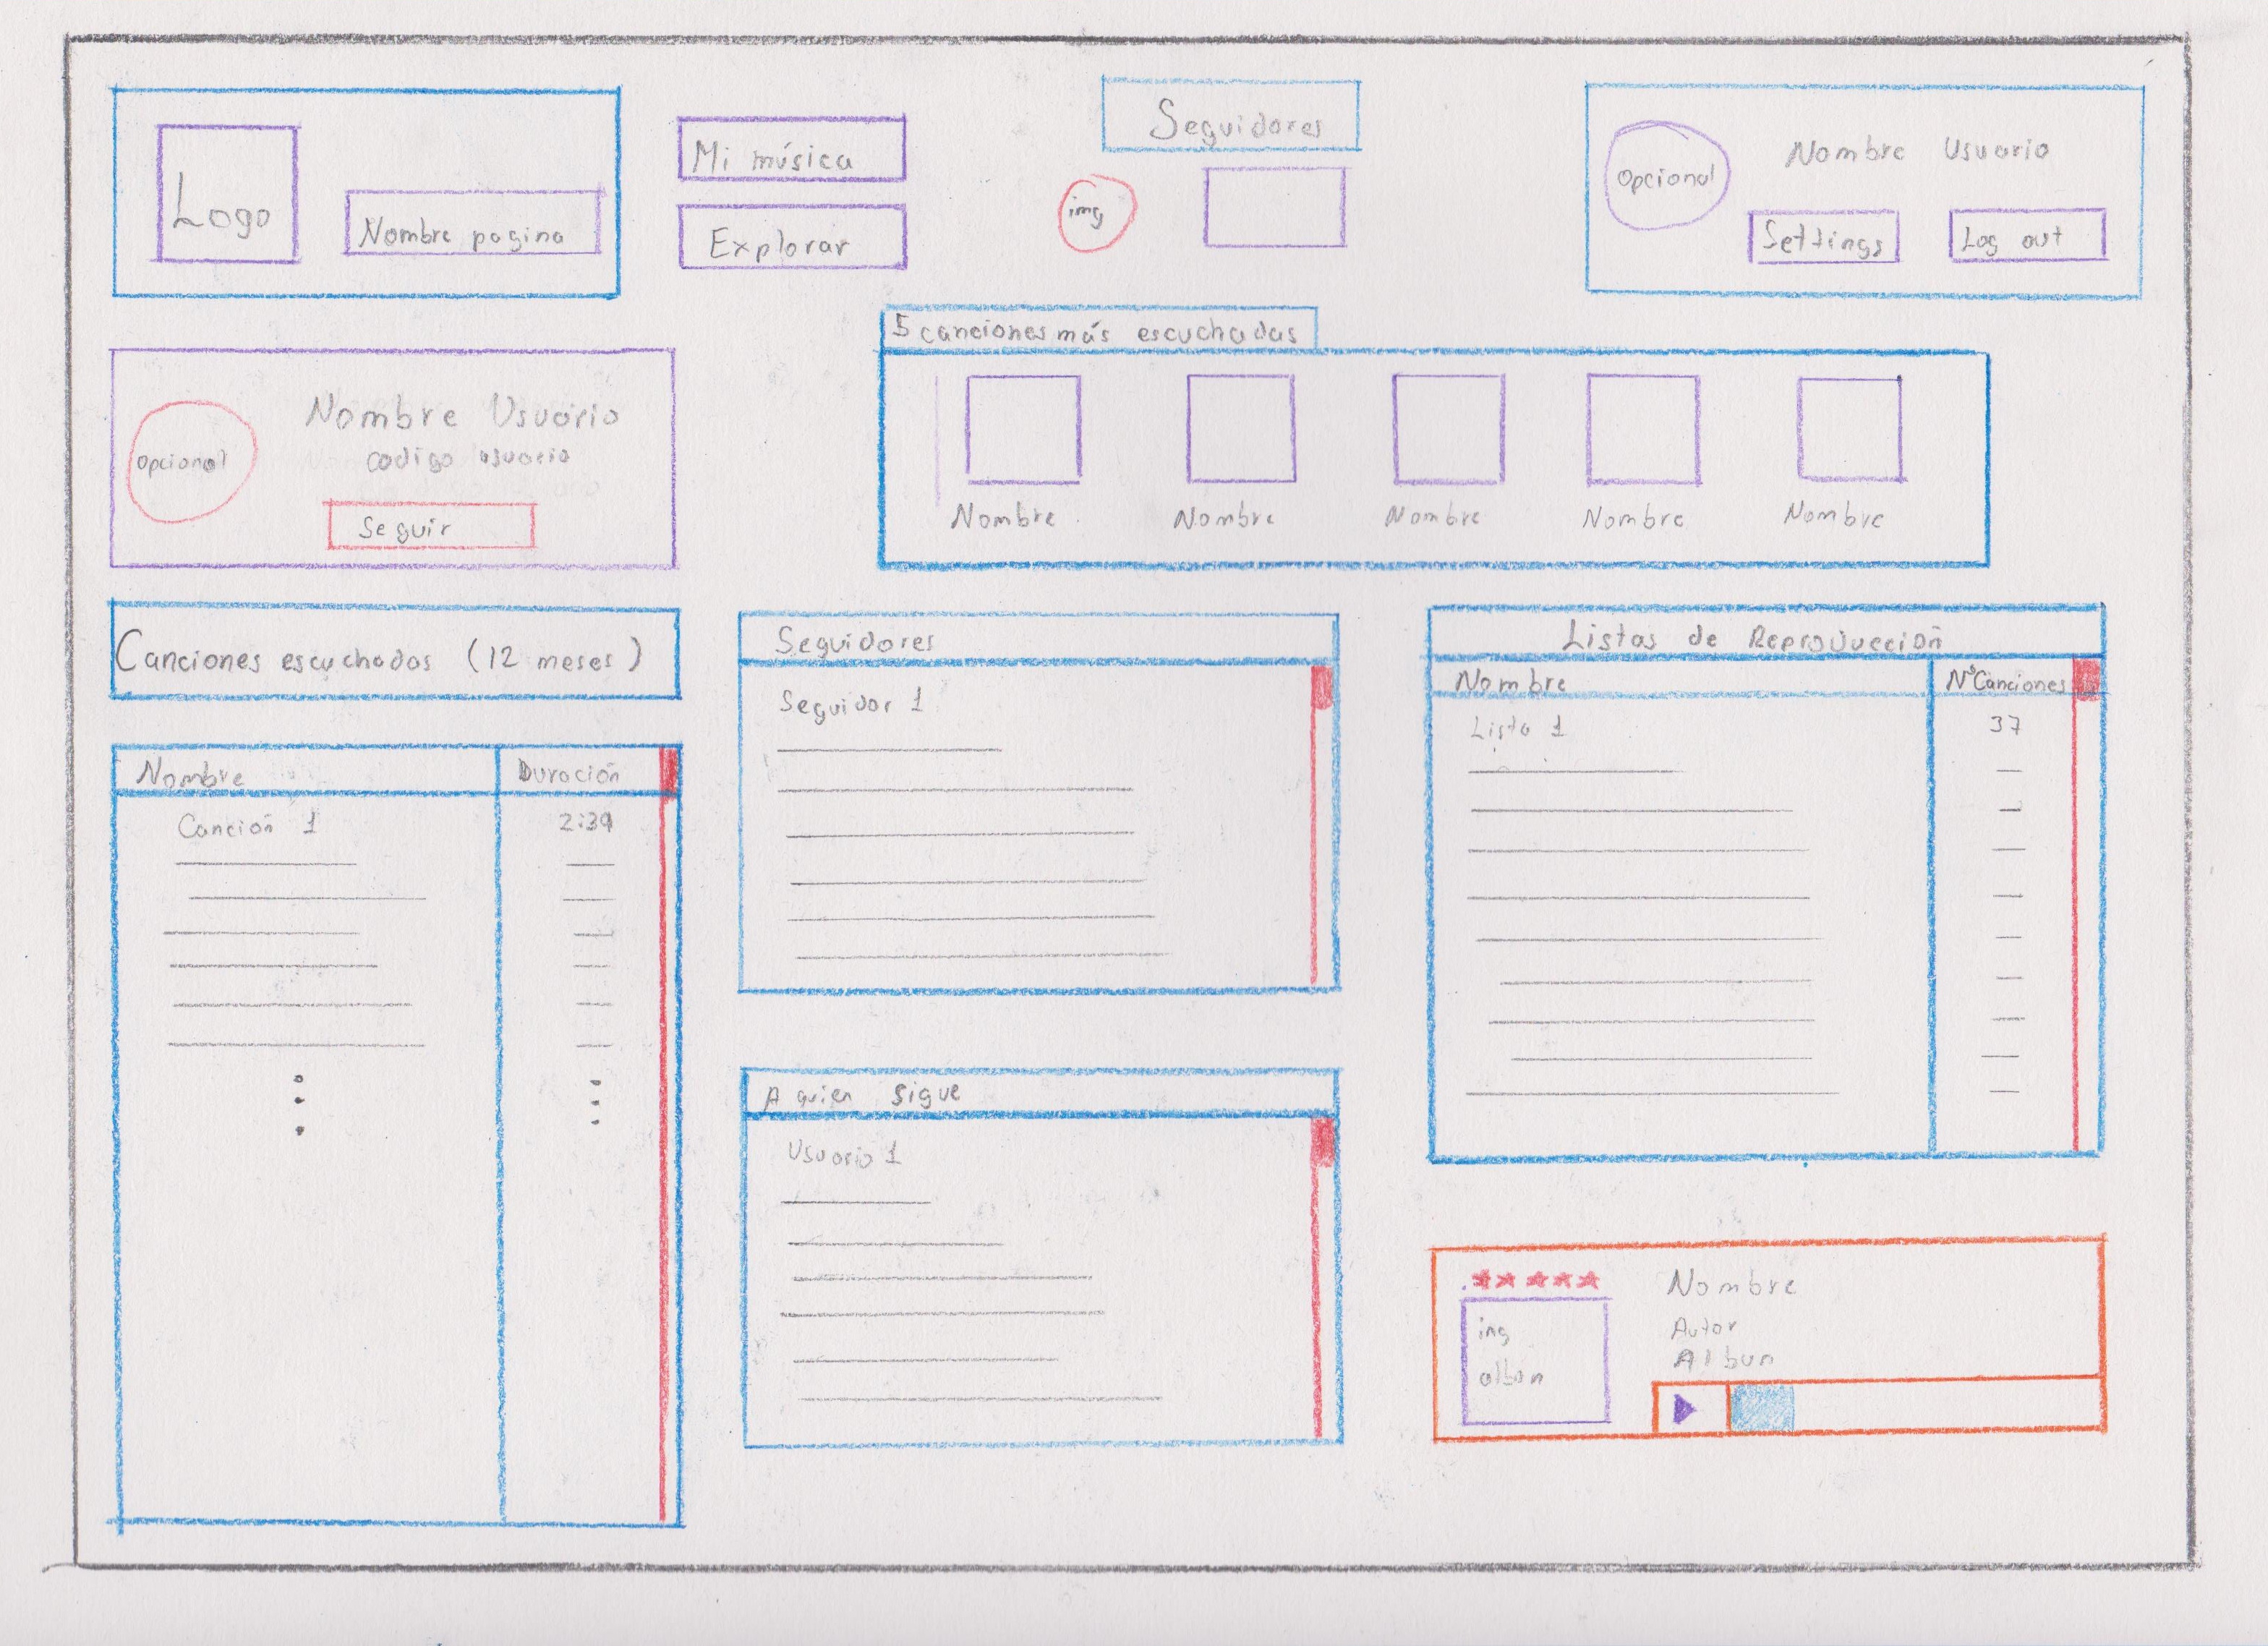 Logo
Nombre pagina
Mi música
Explorar
Seguidores
img
Opcional
Nombre Usuario
Settings
Log out
opcional
Nombre Usuario
codigo usuario
Seguir
5 canciones más escuchadas
Nombre
Nombre
Nombre
Nombre
Nombre
Canciones escuchadas (12 meses)
Nombre
Duración
Canción 1
2:39
Seguidores
Seguidor 1
A quien sigue
Usuario 1
Listas de Reproducción
Nombre
Nº Canciones
Lista 1
37
img
album
Nombre
Autor
Album